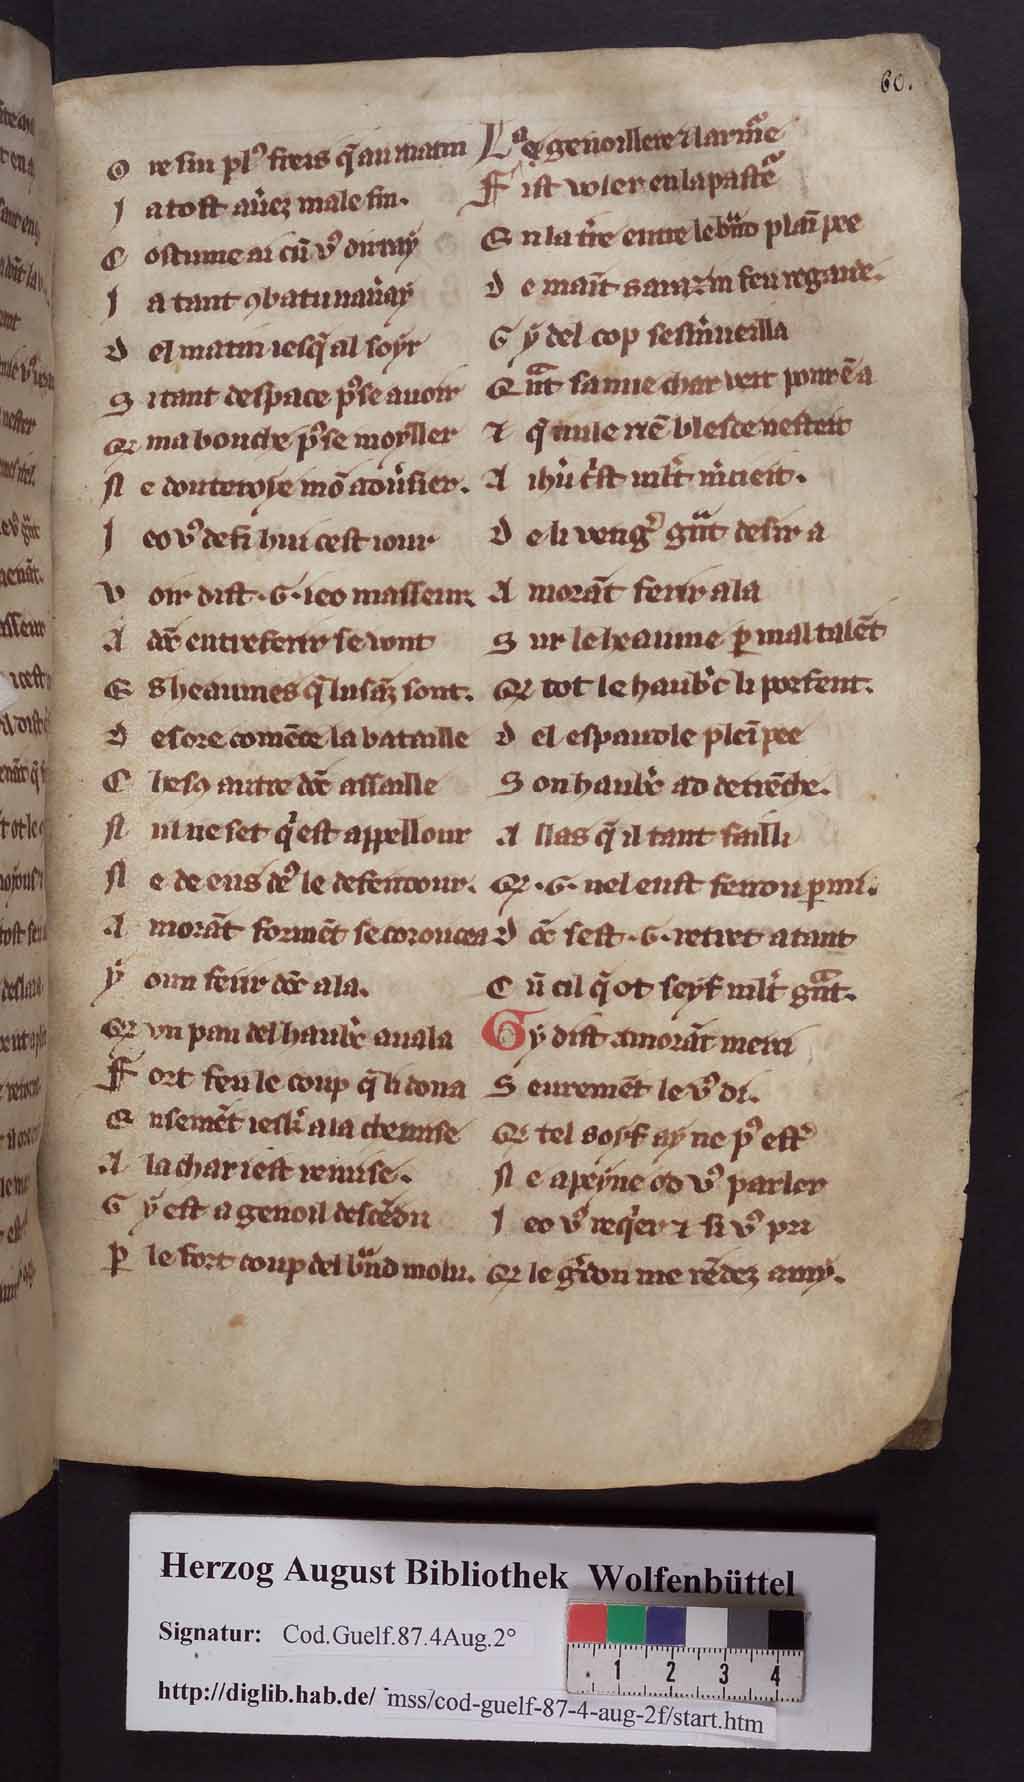 60.
O re sui pl᷒ freis q̃ au matin
J a tost aũez male fin.
C ostume ai cũ v᷒ dirray
J a tant ꝯbatu nau̓ay
D el matin iesq̃ al soyr
S i tant despace p᷒se auoir
Q ma bouche p᷒se moyller
N e doutoroye mõ adu̓sier.
J eo v᷒ defi hui cest iour
V oir dist .G. ieo masseur
A dõc entreferir se uont
E s heaumes q̃ lusãz sont.
D esore comẽce la bataille
C hescꝰ autre dõc assaille
N ul ne set q̓ est appellour
N e de eus de᷒ le defendour.
A morãt formẽt se coroucea
Ẏ oun ferir dõc ala.
Q vn pan del haubc̓ auala
F ort feu le coup q̃ li dona
E nsemẽt iesk̓ a la chemise
A la char iest remise.
G ẏ est a genoil descẽdu
P̲ le fort coup del bũnd molu.
La genoillere ⁊ larmẽe
F ist voler en la pastẽ
E n la tr̃e entre le bũnd plaĩ pee
D e maĩt sarazin feu regarde.
G ẏ del cop sesm̓ueilla
Q ũnt sa nue char veit pour ẽ a
⁊ q̃ nule rẽ blesce nesteit
A ihũ c̓st mlt̓ m̓cieit.
D e li venger gũnt desir a
A morãt ferir ala
S ur le heaume p̲ mal talẽt
Q tot le haub̓c li porfent.
D el espaudle pleĩ pee
S on haub̓c ad detrẽche.
A llas q̃ il tant failli
Q .G. nel eust ferrou p̲mi.
D õc sest .G. retret atant
C ũ cil q̃ ot seyf mlt̓ gũnt.
Gy dist amorãt merci
S euremẽt le v᷒ di.
Q tel soyf ay ne p᷒ estr̓
N e a peyne od v᷒ parler
J eo v᷒ req̓er ⁊ si v᷒ pri
Q le gr̓don me rẽdez amy.
Herzog August Bibliothek Wolfenbüttel
Signatur: Cod.Guelf.87.4Aug.2°
1 2 3 4
http://diglib.hab.de/ mss/cod-guelf-87-4-aug-2f/start.htm